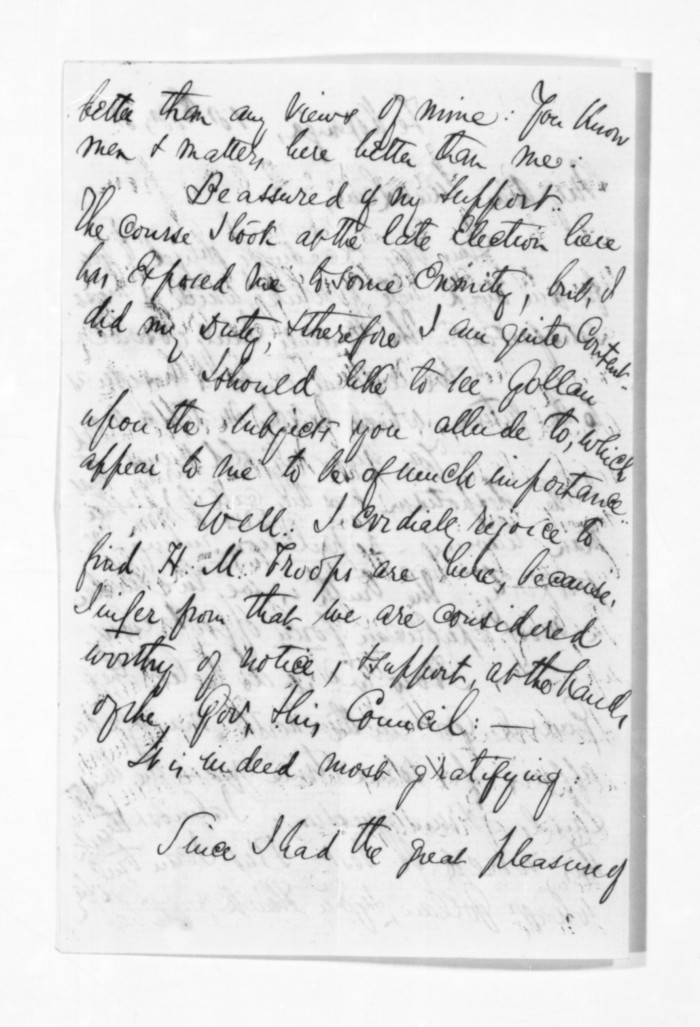 better than any views of mine: You know
men & matters, here better than me:
Be assured of my support.
The course I took at the late Election here
has exposed me to some enmity, but, I
did my Duty, & therefore I am quite content.
I should like to see Gollan
upon the subjects you allude to, which
appear to me to be of much importance:
Well: I cordially rejoice to
find H. M. Troops are here, because,
I infer from that we are considered
worthy of notice, & support, at the hands
of the Gov, & his Council: —
It is indeed most gratifying:
Since I had the great pleasure of